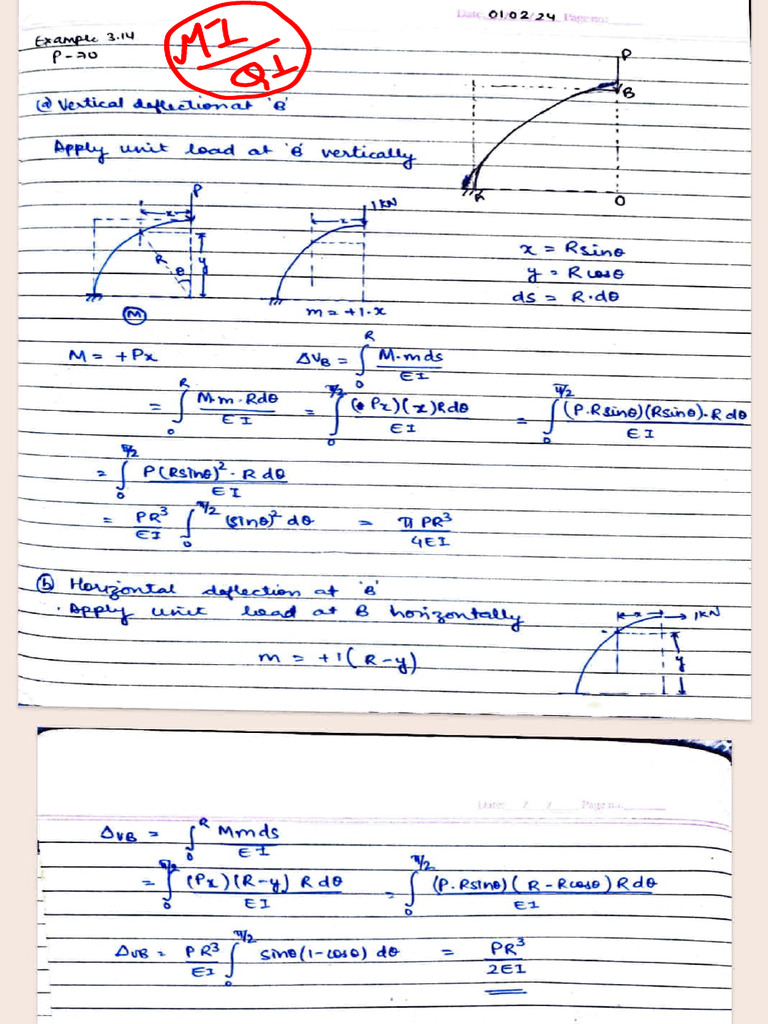 Date: 01/02/24 Page no:
Example 3.14
P-70
M-I
Q1
P
B
A
O
(a) Vertical deflection at 'B'
Apply unit load at 'B' vertically
P
x
R
θ
y
M
1KN
x
m = +1·x
x = R sinθ
y = R cosθ
ds = R·dθ
M = +Px
ΔVB = ∫₀^R M·mds/EI
= ∫₀^R M·m·Rdθ/EI = ∫₀^π/2 (Px)(x)Rdθ/EI = ∫₀^π/2 (P·Rsinθ)(Rsinθ)·Rdθ/EI
= ∫₀^π/2 P(Rsinθ)²·R dθ/EI
= PR³/EI ∫₀^π/2 (sinθ)² dθ = πPR³/4EI
(b) Horizontal deflection at 'B'
· Apply unit load at B horizontally
m = +1(R-y)
x
1KN
y
Date: / / Page no:
ΔVB = ∫₀^R Mmds/EI
= ∫₀^π/2 (Px)(R-y) R dθ/EI = ∫₀^π/2 (P·Rsinθ)(R-Rcosθ)Rdθ/EI
ΔVB = PR³/EI ∫₀^π/2 sinθ(1-cosθ) dθ = PR³/2EI